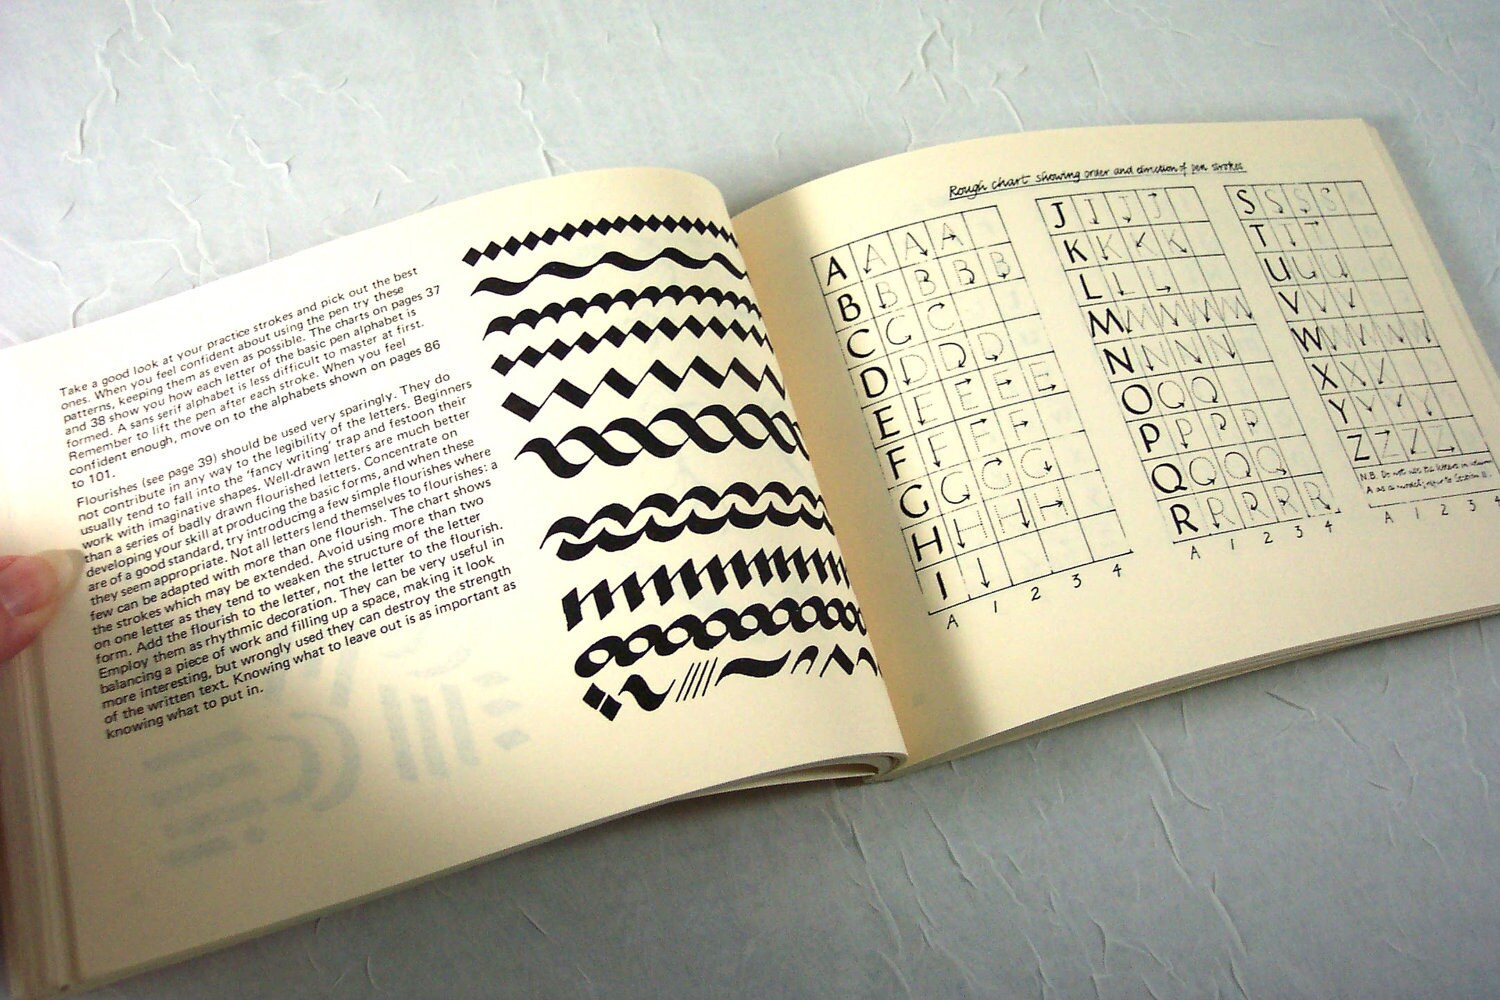 Take a good look at your practice strokes and pick out the best
ones. When you feel confident about using the pen try these
patterns, keeping them as even as possible. The charts on pages 37
and 38 show you how each letter of the basic pen alphabet is
formed. A sans serif alphabet is less difficult to master at first.
Remember to lift the pen after each stroke. When you feel
confident enough, move on to the alphabets shown on pages 86
to 101.
Flourishes (see page 39) should be used very sparingly. They do
not contribute in any way to the legibility of the letters. Beginners
usually tend to fall into the 'fancy writing' trap and festoon their
work with imaginative shapes. Well-drawn letters are much better
than a series of badly drawn flourished letters. Concentrate on
developing your skill at producing the basic forms, and when these
are of a good standard, try introducing a few simple flourishes where
they seem appropriate. Not all letters lend themselves to flourishes: a
few can be adapted with more than one flourish. The chart shows
the strokes which may be extended. Avoid using more than two
on one letter as they tend to weaken the structure of the letter
form. Add the flourish to the letter, not the letter to the flourish.
Employ them as rhythmic decoration. They can be very useful in
balancing a piece of work and filling up a space, making it look
more interesting, but wrongly used they can destroy the strength
of the written text. Knowing what to leave out is as important as
knowing what to put in.
Rough chart showing order and direction of pen strokes
A
B
C
D
E
F
G
H
I
A 1 2 3 4
J
K
L
M
N
O
P
Q
R
A 1 2 3 4
S
T
U
V
W
X
Y
Z
N.B. Do not use the letters in
A as a model
A 1 2 3 4